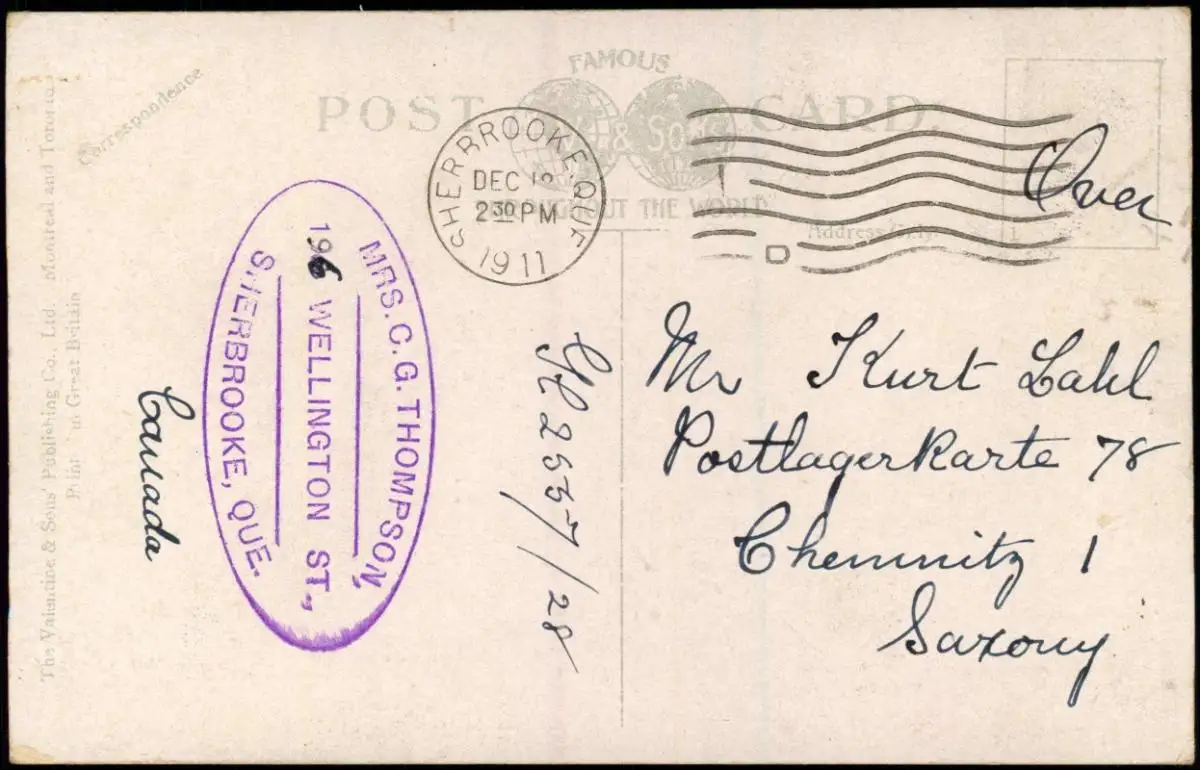 FAMOUS
POST CARD.
& Sons
THROUGHOUT THE WORLD
Correspondence
Address Only
SHERBROOKE, QUE
DEC
2 30 PM
1911
Over
Mr Kurt Lahl
Postlagerkarte 78
Chemnitz 1
Saxony
2557/28
MRS. C. G. THOMPSON,
196 WELLINGTON ST.,
SHERBROOKE, QUE.
Canada
The Valentine & Sons' Publishing Co., Ltd. Montreal and Toronto
Printed in Great Britain